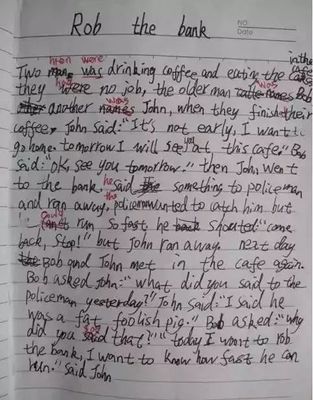 Rob the bank
NO.
Date
in the
men were
Two man was drinking coffee and eating the cake
had was
they were no job, the older man names Bob
was
another names John, when they finish their
coffee, John said: "It's not early, I want to
you
go home tomorrow I will see at this cafe." Bob
said: "OK, see you tomorrow." then John went
he
to the bank, said something to policeman
the
and ran away, policeman wanted to catch him but
could
can't run so fast he back shouted: "come
back, stop!" but John ran away. next day
Bob and John met in the cafe again.
Bob asked John: "what did you said to the
policeman yesterday?" John said: "I said he
was a fat foolish pig." Bob asked: "why
say
did you said that?" "today I want to rob
the bank, I want to know how fast he can
run." said John